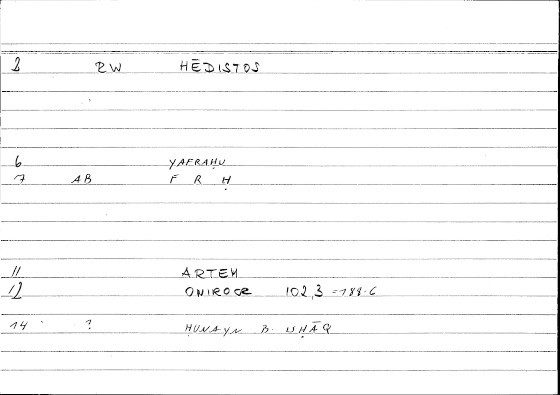 2 RW HĒDISTOS
6 YAFRAḤU
7 AB F R Ḥ
11 ARTEM
12 ONIROCR 102,3 =188-6
14 ? ḤUNAYN B. ISḤĀQ